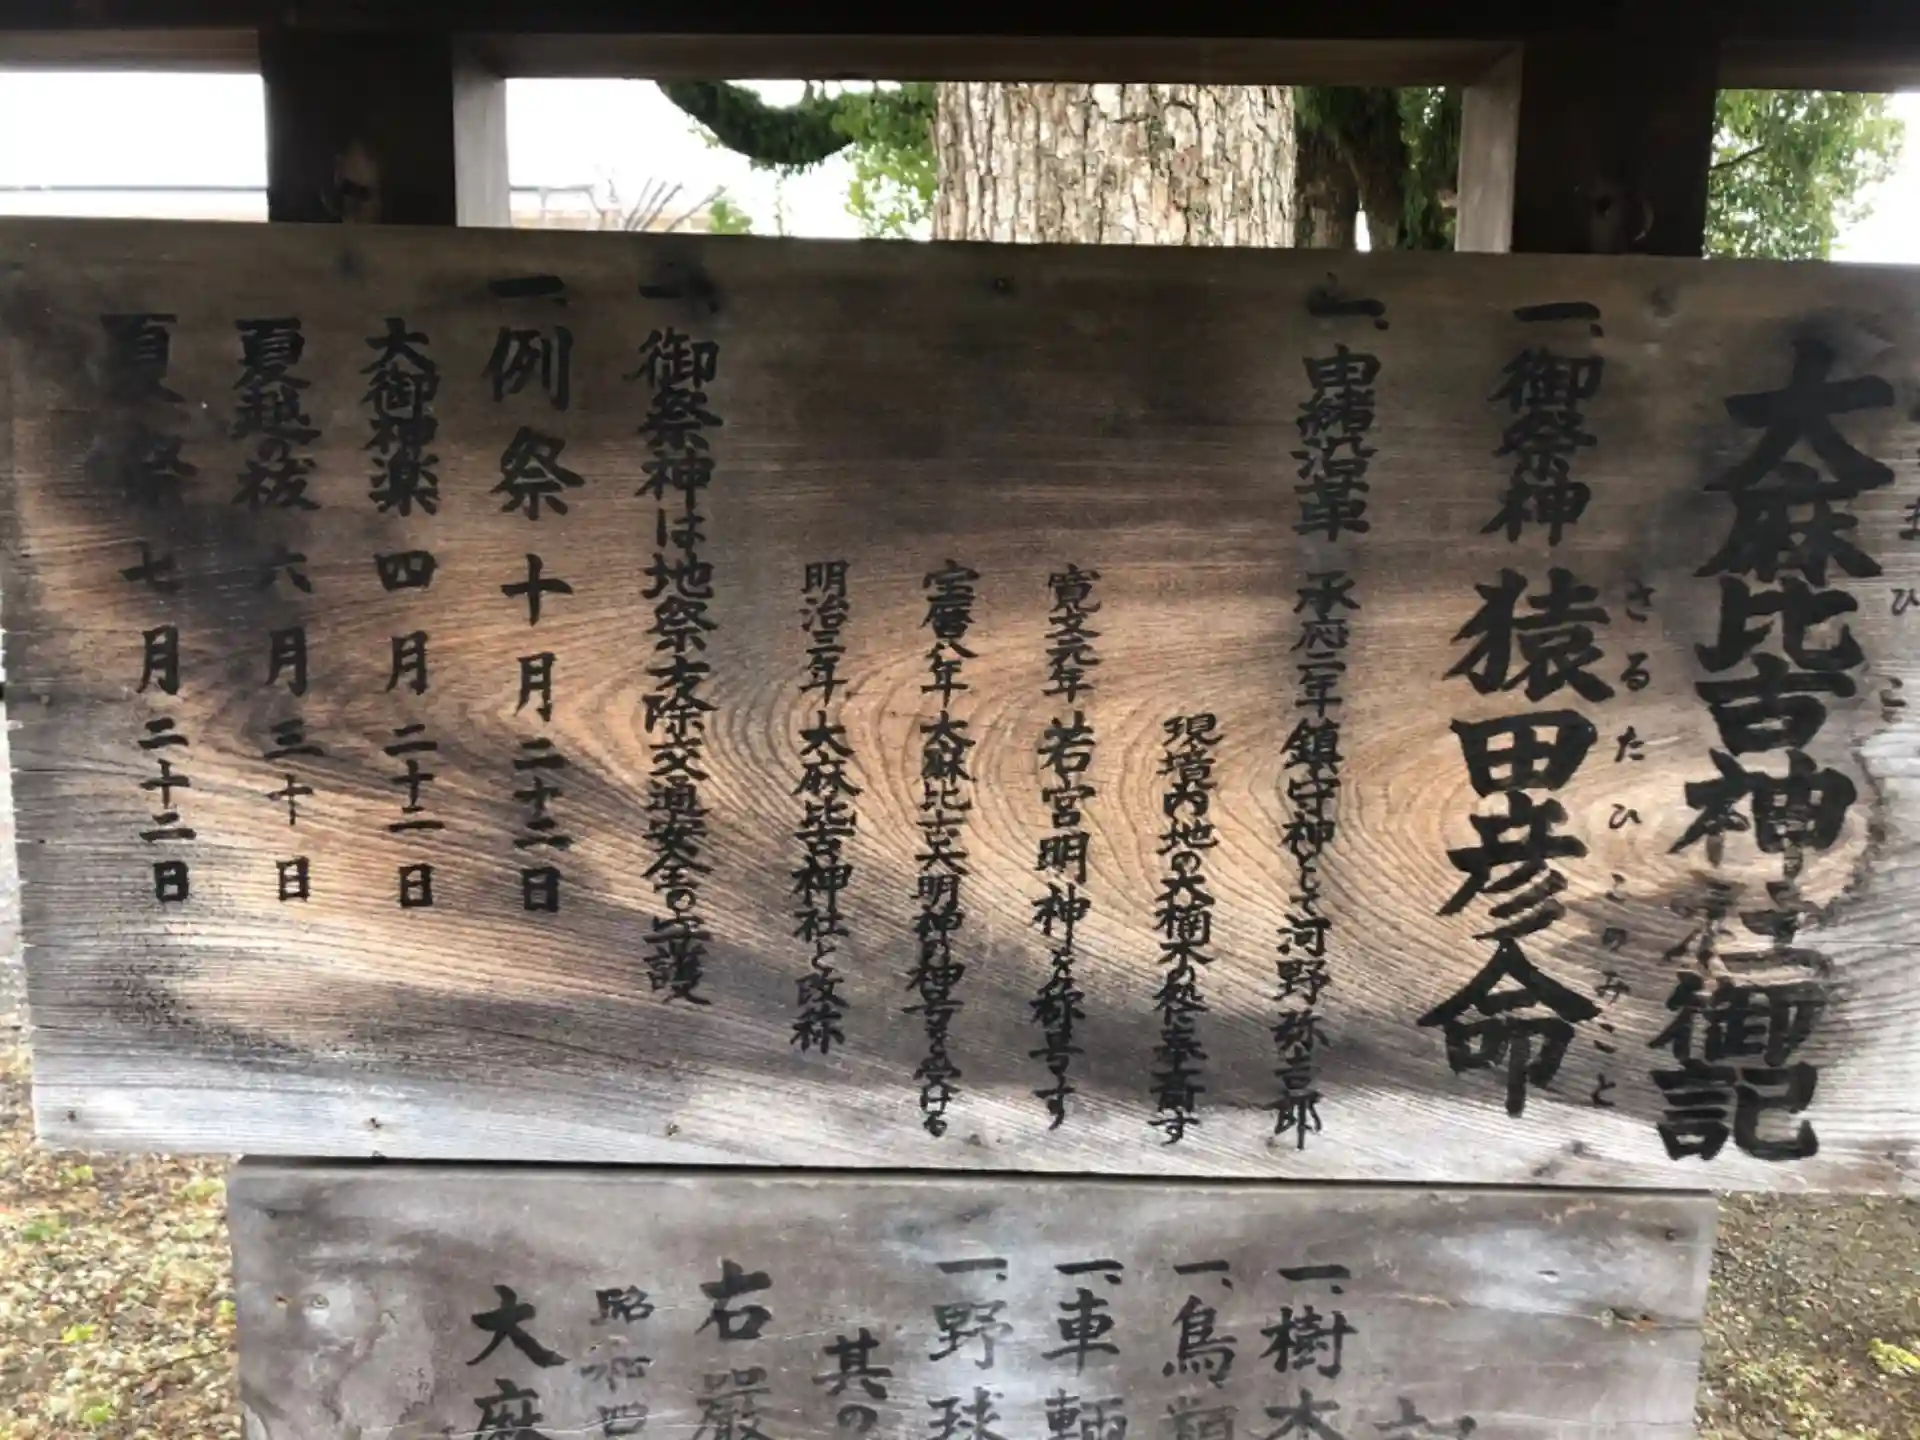 大麻比古神社御記
一、御祭神 猿田彦命
さるたひこのみこと
一、由緒沿革 承応二年鎮守神として河野弥吉郎
現境内地の大楠木の処に奉斎す
寛文元年 若宮明神と称号す
宝暦八年 大麻比古大明神の神号を受ける
明治三年 大麻比古神社と改称
一、御祭神は地祭方除交通安全の守護
一、例祭 十月二十二日
大御神楽 四月二十二日
夏越の祓 六月三十日
夏祭 七月二十二日
一、樹木
一、鳥類
一、車輌
一、野球
其の
右厳
大麻